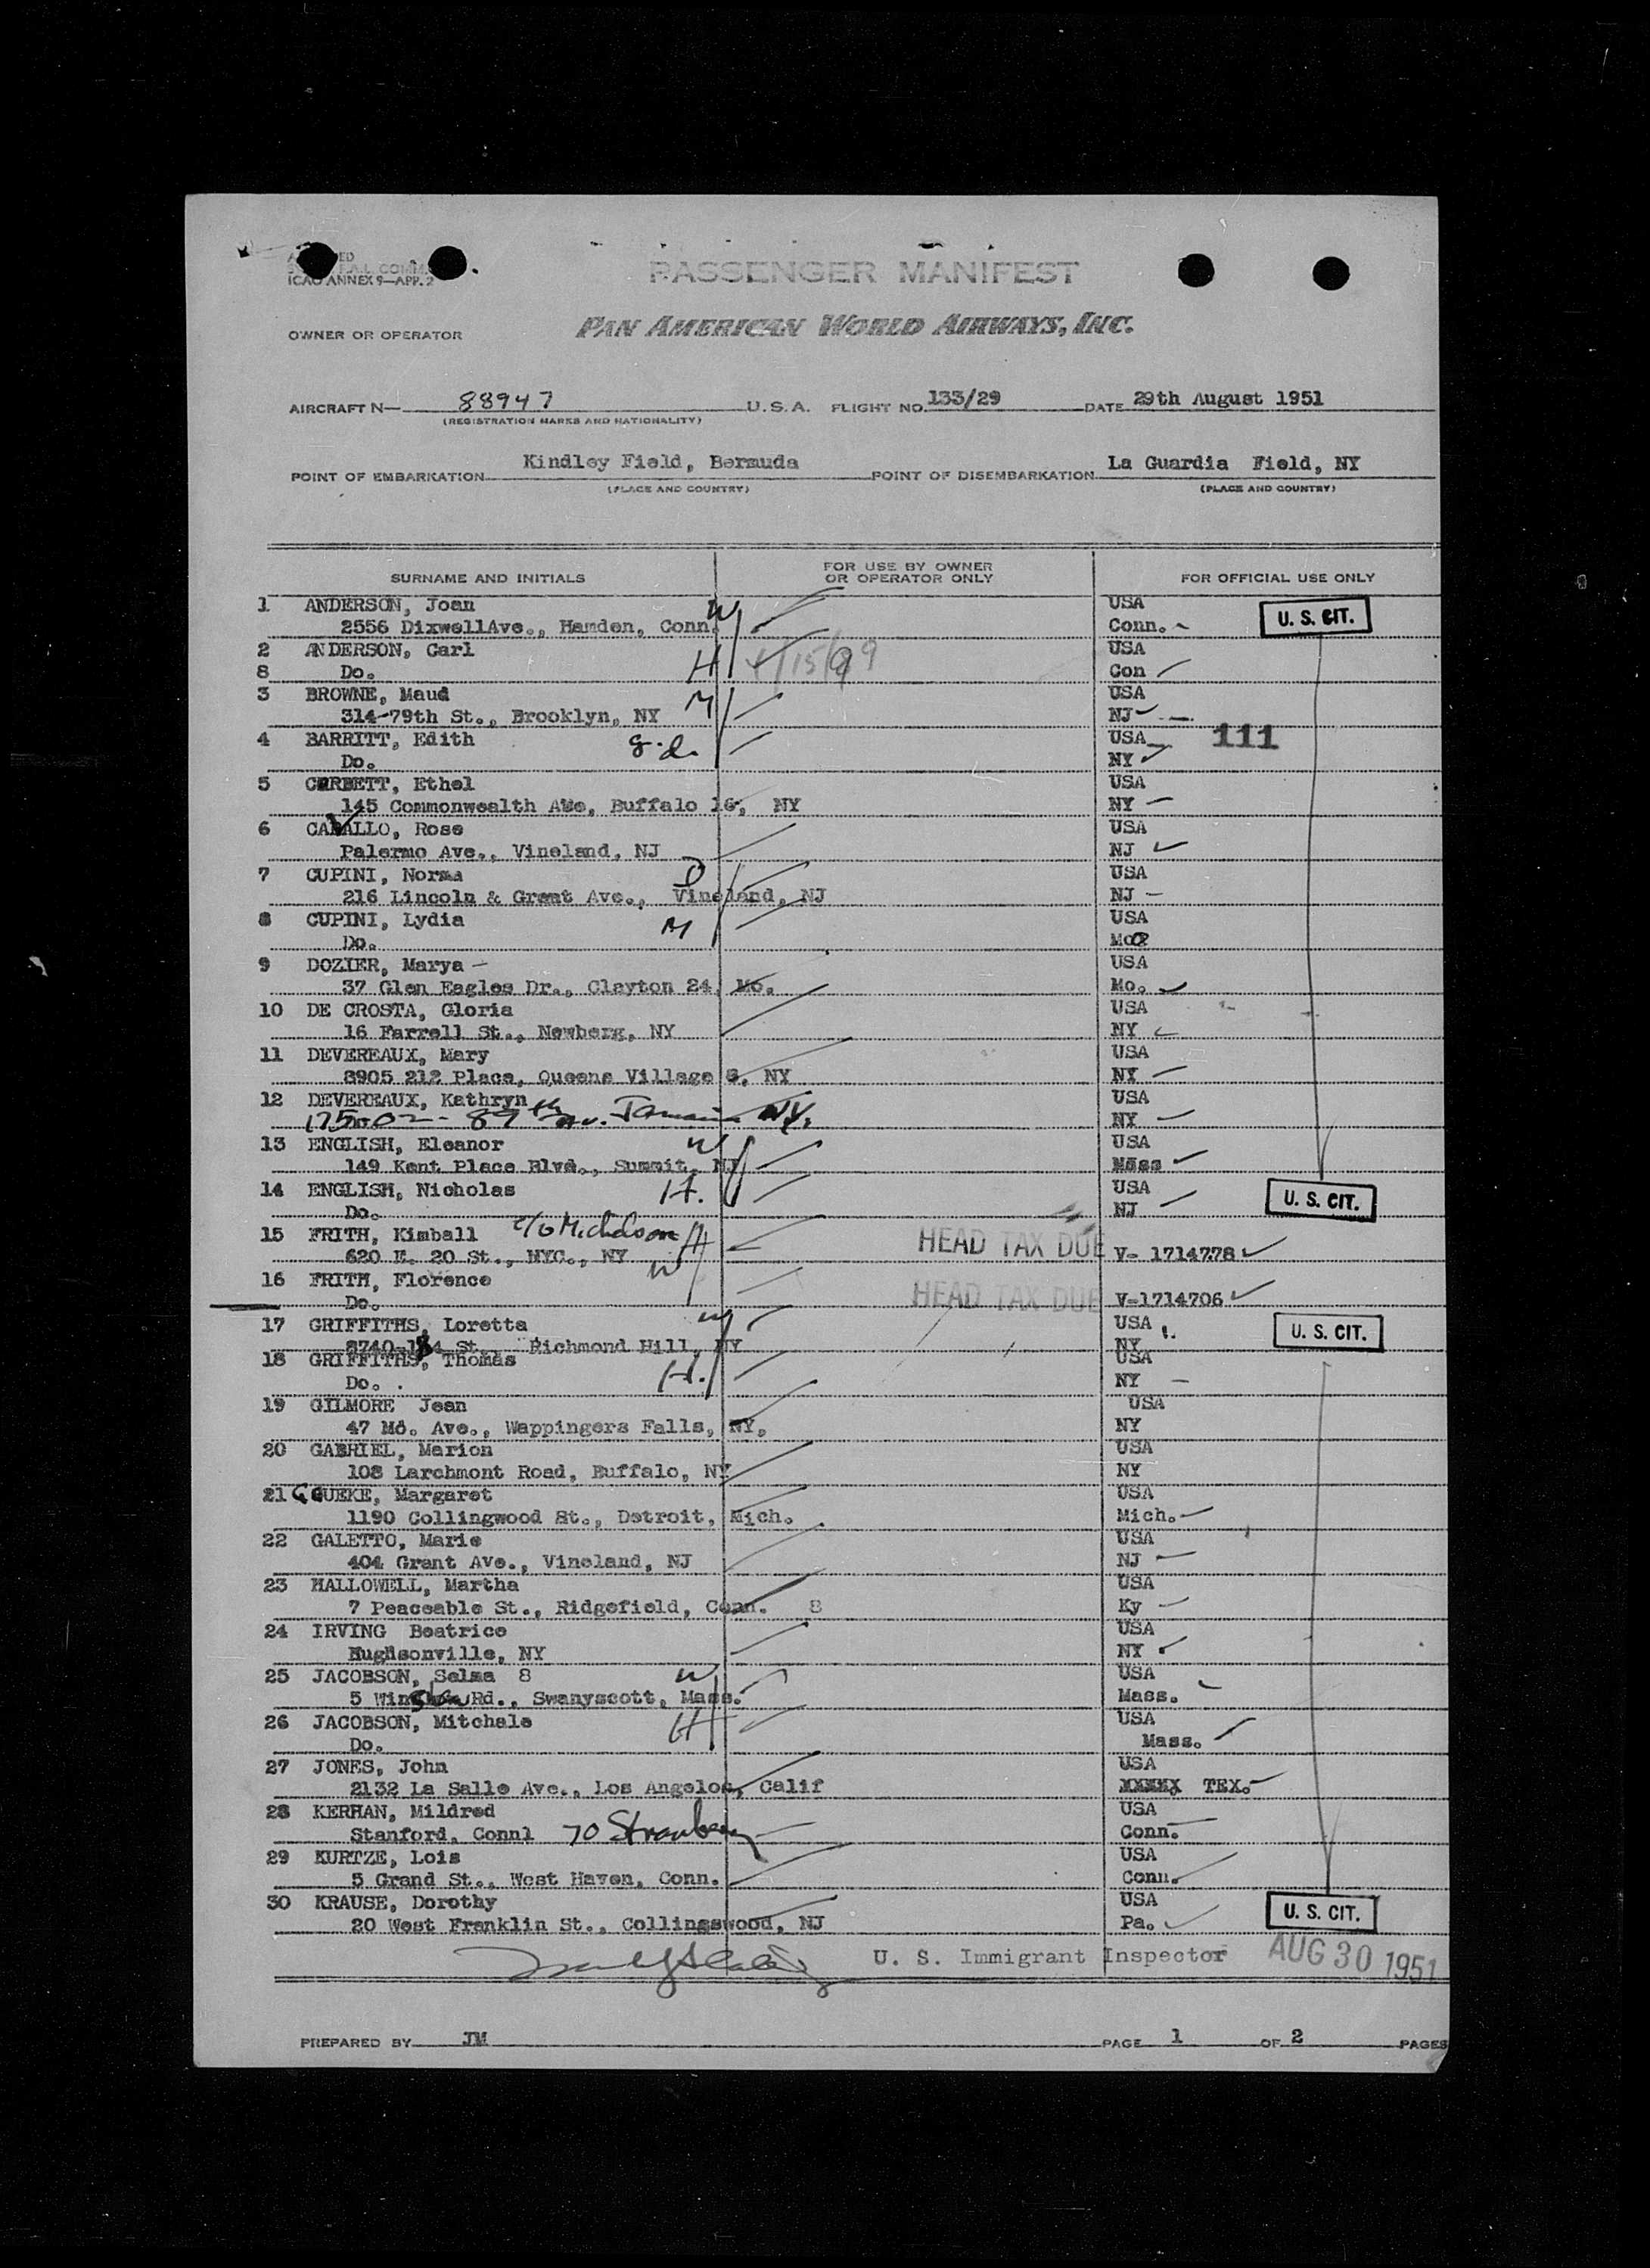 F.A.L. COMM.
ICAO ANNEX 9—APP. 2
PASSENGER MANIFEST
OWNER OR OPERATOR PAN AMERICAN WORLD AIRWAYS, INC.
AIRCRAFT N— 88947 U.S.A. FLIGHT NO. 133/29 DATE 29th August 1951
(REGISTRATION MARKS AND NATIONALITY)
POINT OF EMBARKATION Kindley Field, Bermuda POINT OF DISEMBARKATION La Guardia Field, NY
(PLACE AND COUNTRY) (PLACE AND COUNTRY)
SURNAME AND INITIALS FOR USE BY OWNER OR OPERATOR ONLY FOR OFFICIAL USE ONLY
1 ANDERSON, Joan W USA U. S. CIT.
2556 DixwellAve., Hamden, Conn. Conn.
2 ANDERSON, Carl H USA
8 Do. Con
3 BROWNE, Maud M USA
314-79th St., Brooklyn, NY NJ
4 BARRITT, Edith g.d. USA 111
Do. NY
5 CORBETT, Ethel USA
145 Commonwealth Ave, Buffalo 16, NY NY
6 CAVALLO, Rose USA
Palermo Ave., Vineland, NJ NJ
7 CUPINI, Norma D USA
216 Lincoln & Grant Ave., Vineland, NJ NJ
8 CUPINI, Lydia M USA
Do. Mo
9 DOZIER, Marya USA
37 Glen Eagles Dr., Clayton 24, Mo. Mo.
10 DE CROSTA, Gloria USA
16 Farrell St., Newberg, NY NY
11 DEVEREAUX, Mary USA
8905 212 Place, Queens Village 8, NY NY
12 DEVEREAUX, Kathryn USA
175-02- 89th Av. Jamaica NY. NY
13 ENGLISH, Eleanor W USA
149 Kent Place Blvd., Summit, NJ Mass
14 ENGLISH, Nicholas H. USA U. S. CIT.
Do. NJ
15 FRITH, Kimball c/o Micholson H HEAD TAX DUE
620 E. 20 St., NYC., NY V- 1714778
16 FRITH, Florence W HEAD TAX DUE
Do. V-1714706
17 GRIFFITHS, Loretta W USA U. S. CIT.
8740-134 St. Richmond Hill, NY NY
18 GRIFFITHS, Thomas H. USA
Do. NY
19 GILMORE Jean USA
47 Mo. Ave., Wappingers Falls, NY, NY
20 GABRIEL, Marion USA
108 Larchmont Road, Buffalo, NY NY
21 GUEKE, Margaret USA
1190 Collingwood St., Detroit, Mich. Mich.
22 GALETTO, Marie USA
404 Grant Ave., Vineland, NJ NJ
23 HALLOWELL, Martha USA
7 Peaceable St., Ridgefield, Conn. 8 Ky
24 IRVING Beatrice USA
Hughsonville, NY NY
25 JACOBSON, Selma 8 W USA
5 Winslow Rd., Swanyscott, Mass. Mass.
26 JACOBSON, Mitchale H USA
Do. Mass.
27 JONES, John USA
2132 La Salle Ave., Los Angelos, Calif XXXXX TEX.
28 KERHAN, Mildred USA
Stanford, Connl 70 Strawberry Conn.
29 KURTZE, Lois USA
5 Grand St., West Haven, Conn. Conn.
30 KRAUSE, Dorothy USA U. S. CIT.
20 West Franklin St., Collingswood, NJ Pa.
U. S. Immigrant Inspector AUG 30 1951
PREPARED BY JM PAGE 1 OF 2 PAGES